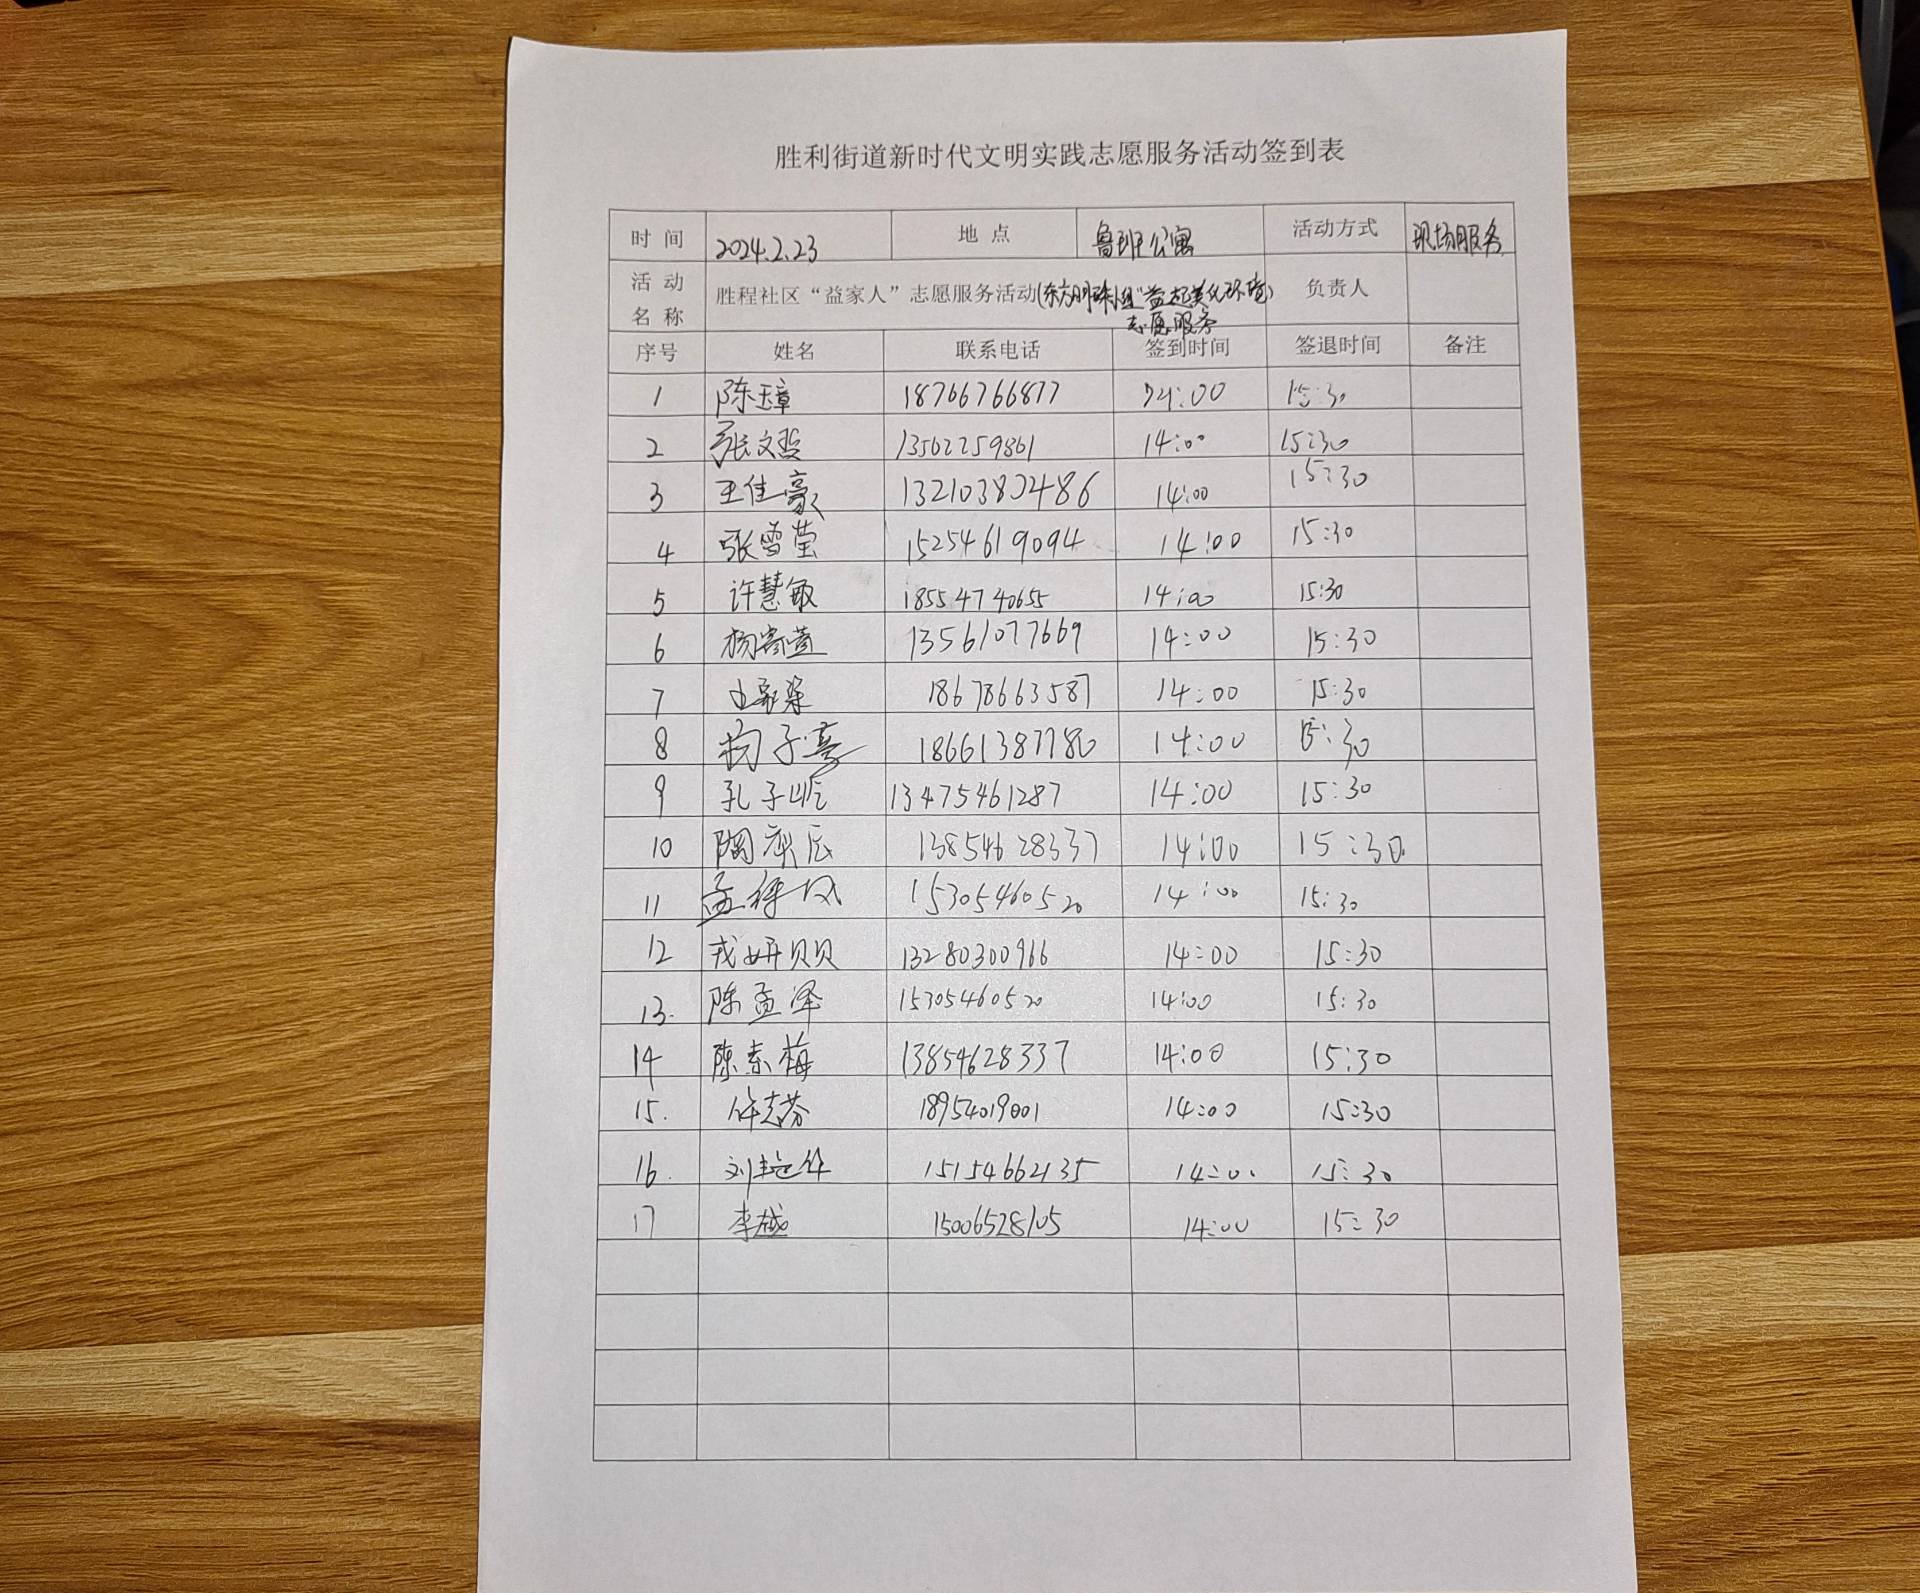 胜利街道新时代文明实践志愿服务活动签到表
时间 2024.2.23 地点 鲁班公寓 活动方式 现场服务
活动名称 胜程社区“益家人”志愿服务活动(东方明珠小组“益起美化环境) 负责人
志愿服务
序号 姓名 联系电话 签到时间 签退时间 备注
1 陈玉璋 18766766877 14:00 15:30
2 13562259861 14:00 15:30
3 王佳豪 132103802486 14:00 15:30
4 张雪莹 15254619094 14:00 15:30
5 许慧敏 18554740655 14:00 15:30
6 13561077669 14:00 15:30
7 18678663587 14:00 15:30
8 18661387780 14:00 15:30
9 孔子屹 13475461287 14:00 15:30
10 13854628337 14:00 15:30
11 15305460520 14:00 15:30
12 戎妍贝贝 13280300966 14:00 15:30
13. 陈孟泽 15305460520 14:00 15:30
14 陈素梅 13854628337 14:00 15:30
15. 18954019001 14:00 15:30
16. 15154662135 14:00. 15:30
17 李越 15006528105 14:00 15:30